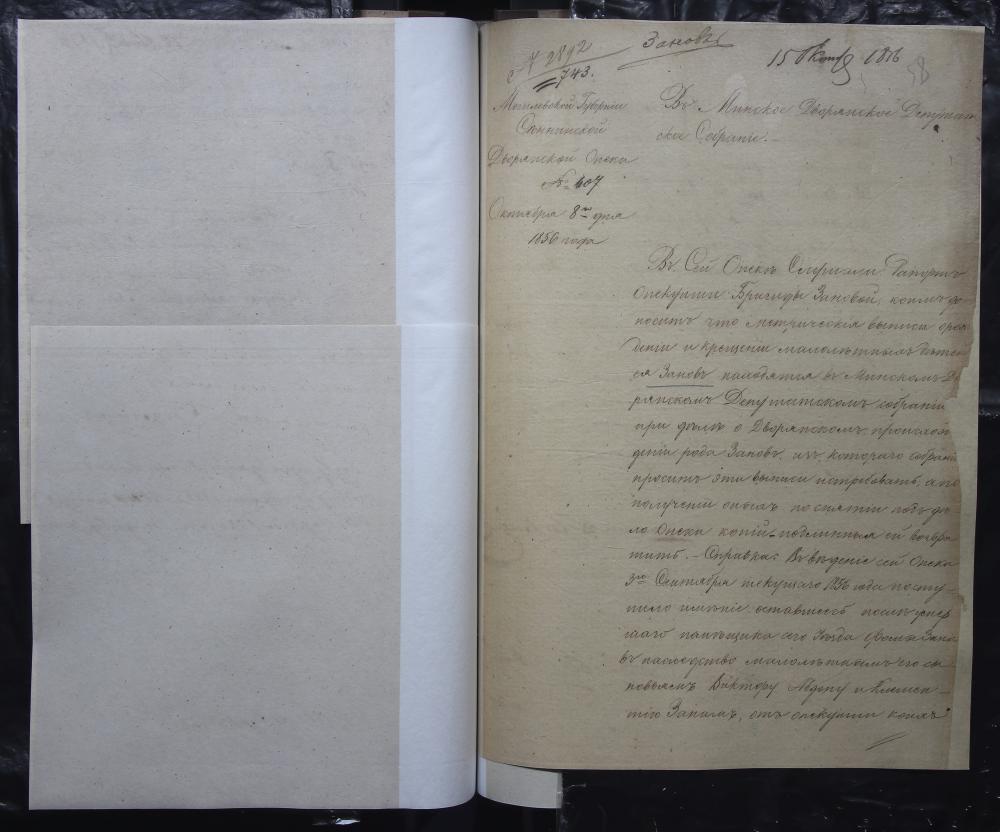 7 2892
743.
Зановъ
15 Октяб 1856
58
Могилевской Губерніи
Сѣннинской
Дворянской Опеки
№ 407
Октября 8го дня
1856 года
Въ Минское Дворянское Депутат
ское Собраніе.
Въ Сей Опекѣ Слушали Рапортъ
опекунши Бригиды Зановой, коимъ до
носитъ что метрическія выписи орож
деніи и крещеніи малолѣтныхъ
ся Зановъ находятся въ Минскомъ Дво
рянскомъ Депутатскомъ собраніи
при дѣлѣ о Дворянскомъ происхож
деніи рода Зановъ, изъ котораго собранія
проситъ эти выписи истребовать, а по
полученіи оныхъ по снятіи подъ дѣ
ло Опеки копій подлинныя ей возвра
тить. — Справка: Въ вѣденіе сей Опеки
3го Сентября текущаго 1856 года посту
пило имѣніе оставшееся послѣ умер
шаго помѣщика сего Уѣзда Зана
въ наслѣдство малолѣтнымъ его сы
новьямъ Виктору Абдону и Клемен
тію Занамъ, отъ опекунши коихъ